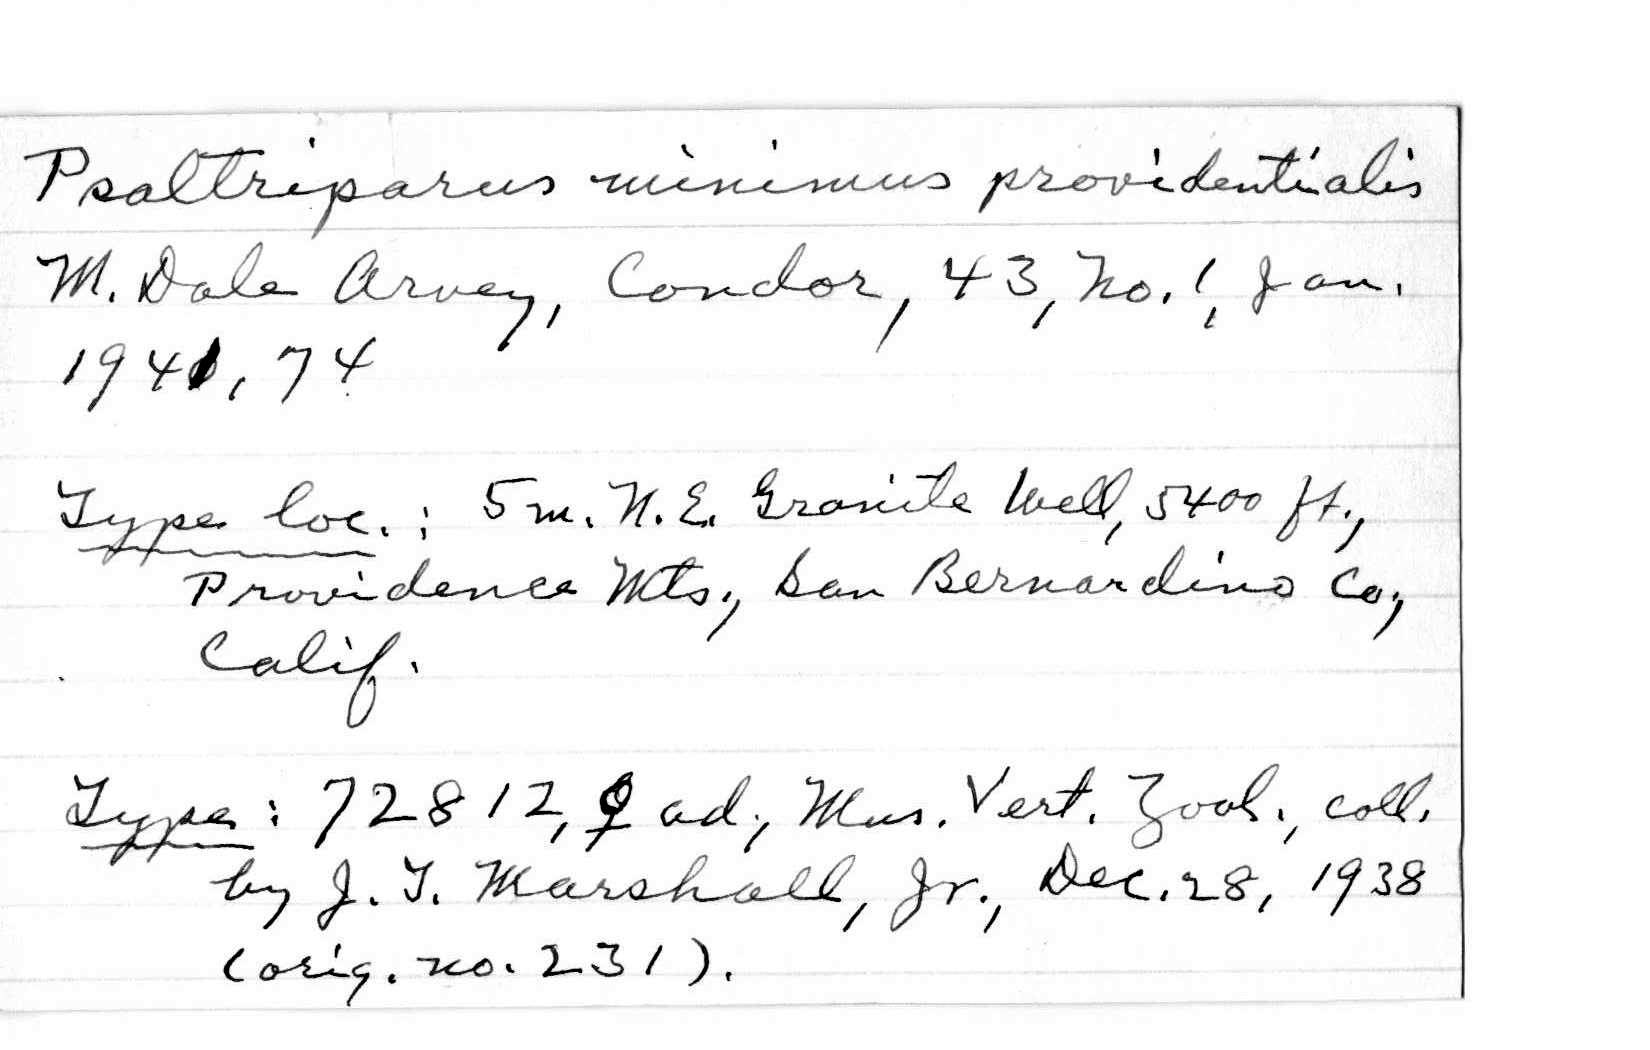 Psaltriparus minimus providentialis
M. Dale Arvey, Condor, 43, No. 1, Jan.
1941, 74
Type loc.: 5 m. N.E. Granite Well, 5400 ft.,
Providence Mts., San Bernardino Co.,
Calif.
Type: 72812, ♀ ad., Mus. Vert. Zool., coll.
by J. T. Marshall, Jr., Dec. 28, 1938
(orig. no. 231).